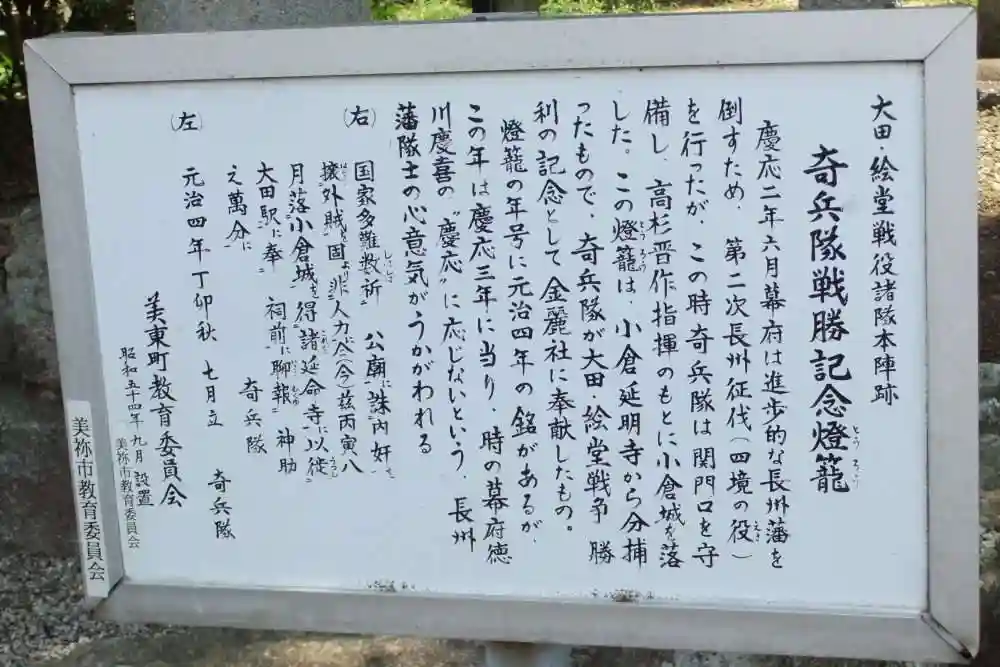 大田・絵堂戦役諸隊本陣跡
奇兵隊戦勝記念燈籠
とうろう
慶応二年六月幕府は進歩的な長州藩を
倒すため、第二次長州征伐(四境の役)
えき
を行ったが、この時奇兵隊は関門口を守
備し、高杉晋作指揮のもとに小倉城を落
した。この燈籠は、小倉延明寺から分捕
とうろう
ったもので、奇兵隊が大田・絵堂戦争勝
利の記念として金麗社に奉献したもの。
燈籠の年号に元治四年の銘があるが、
この年は慶応三年に当り、時の幕府徳
川慶喜の〝慶応〟に応じないという、長州
藩隊士の心意気がうかがわれる
(右)
国家多難数祈 公廟に誅内奸
攘外賊を固より非人力に(今)茲丙寅八
月落小倉城を得諸延命寺に以従
大田駅に奉 祠前に聊報 神助
之萬分に 奇兵隊
(左)
元治四年丁卯秋 七月立 奇兵隊
美東町教育委員会
昭和五十四年九月設置
美祢市教育委員会
美祢市教育委員会